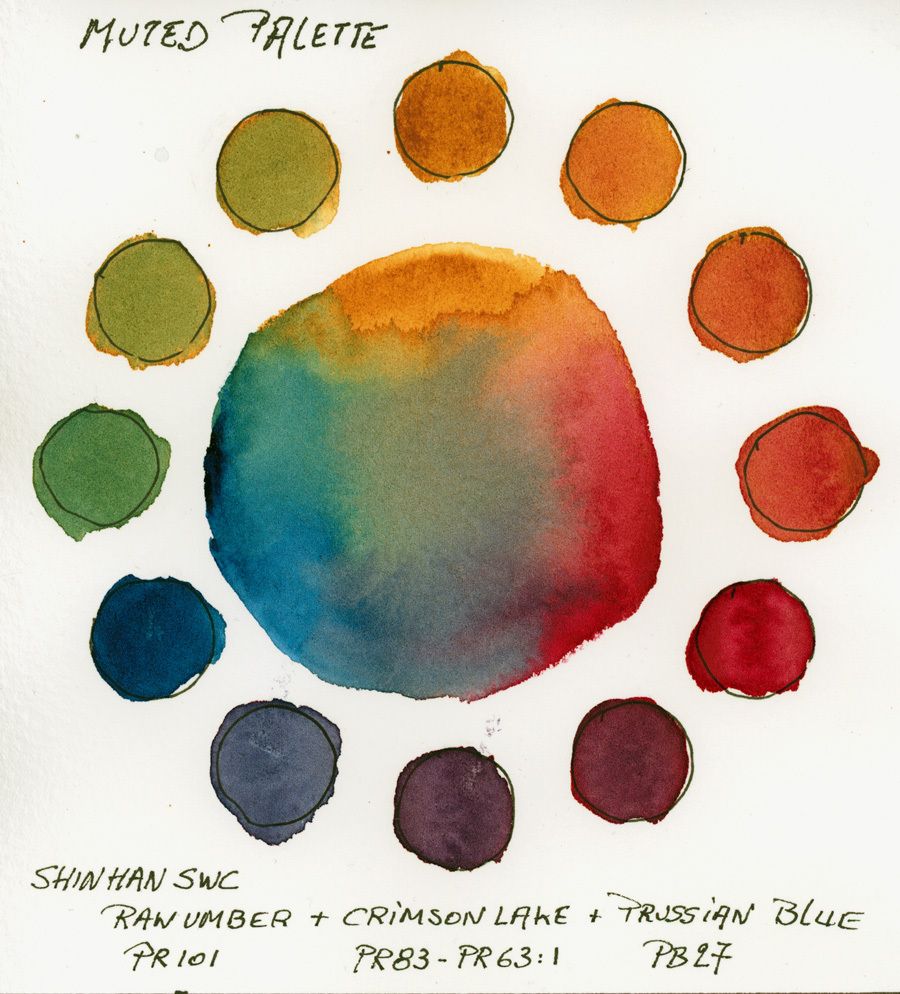 MUTED PALETTE
SHINHAN SWC
RAW UMBER + CRIMSON LAKE + PRUSSIAN BLUE
PR101 PR83-PR63:1 PB27